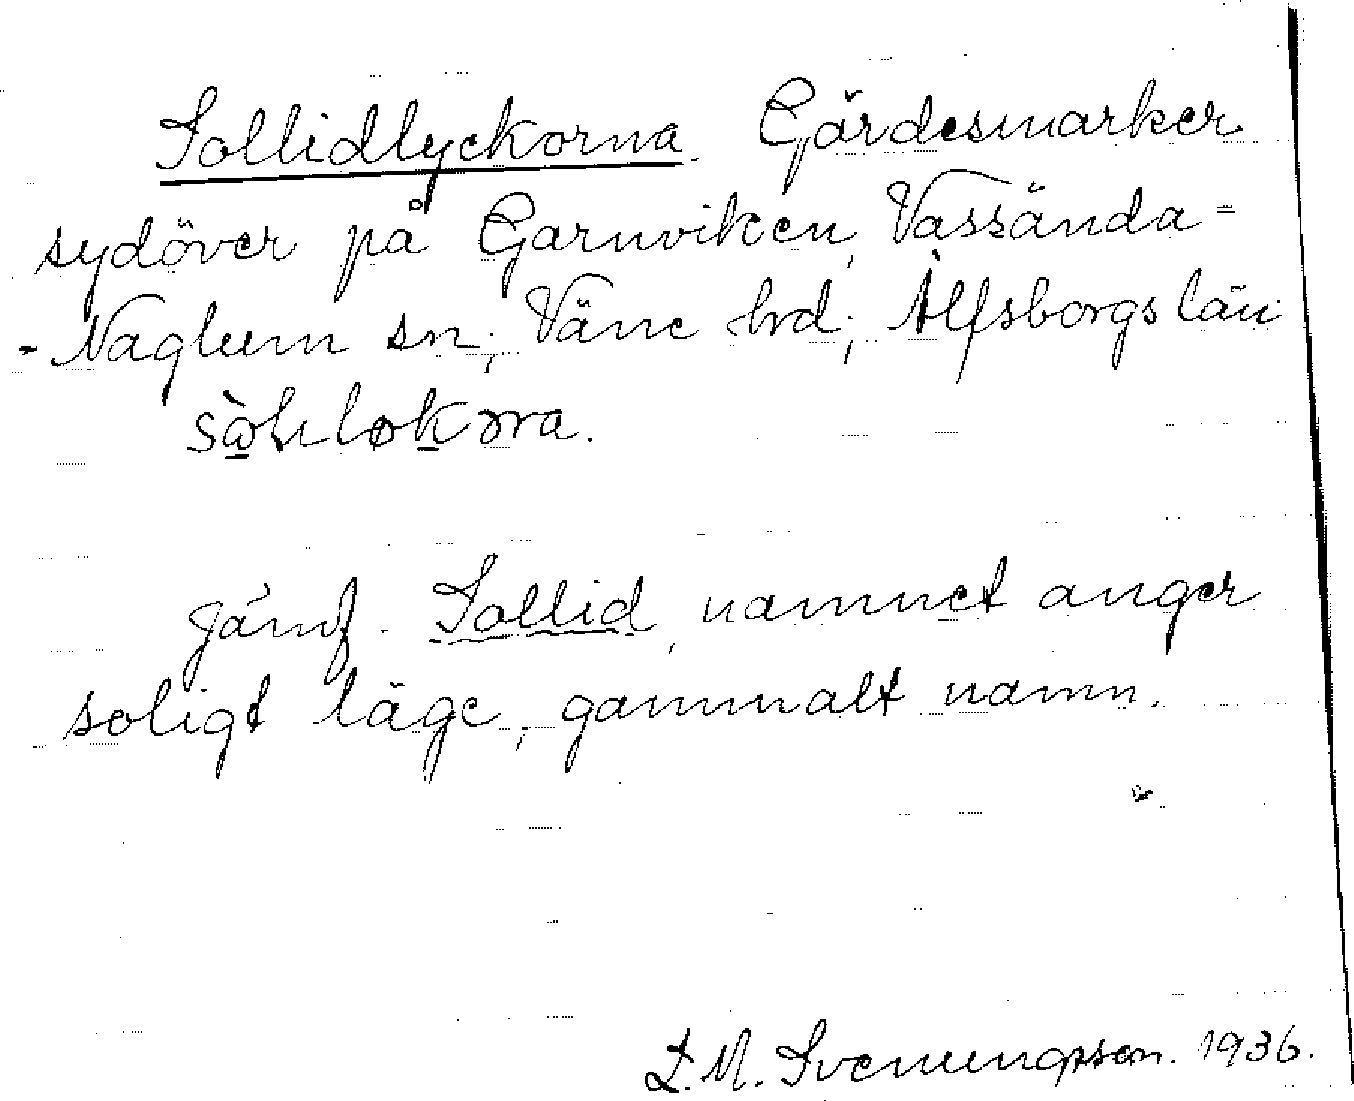 Sollidlyckorna. Gärdesmarker
sydöver på Garnviken, Vassända=
-Naglum sn; Väne hrd; Älfsborgs län
jämf. Sollid, namnet anger
soligt läge, gammalt namn.
L. M. Svenungsson. 1936.